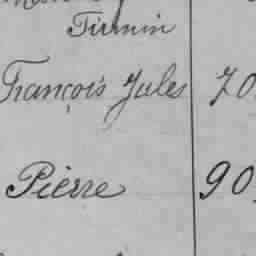 Firmin
François Jules 70
Pierre 90